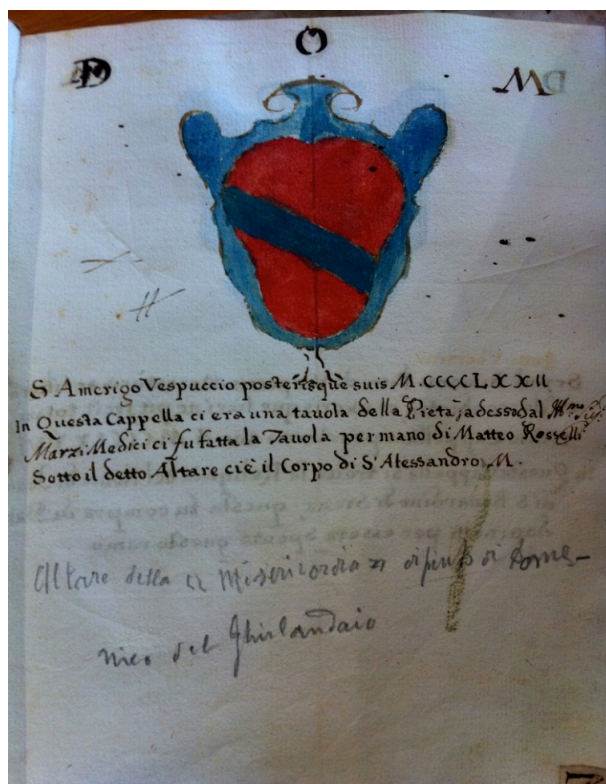 D O M
S. Amerigo Vespuccio posterisque suis M.CCCCLXXII
In Questa Cappella ci era una tavola della Pietà, adesso dal
Marzi Medici ci fu fatta la Tavola per mano di Matteo Rosselli
Sotto il detto Altare ci è il Corpo di S. Alessandro M.
Altare della Misericordia dipinto di Dome-
nico del Ghirlandaio